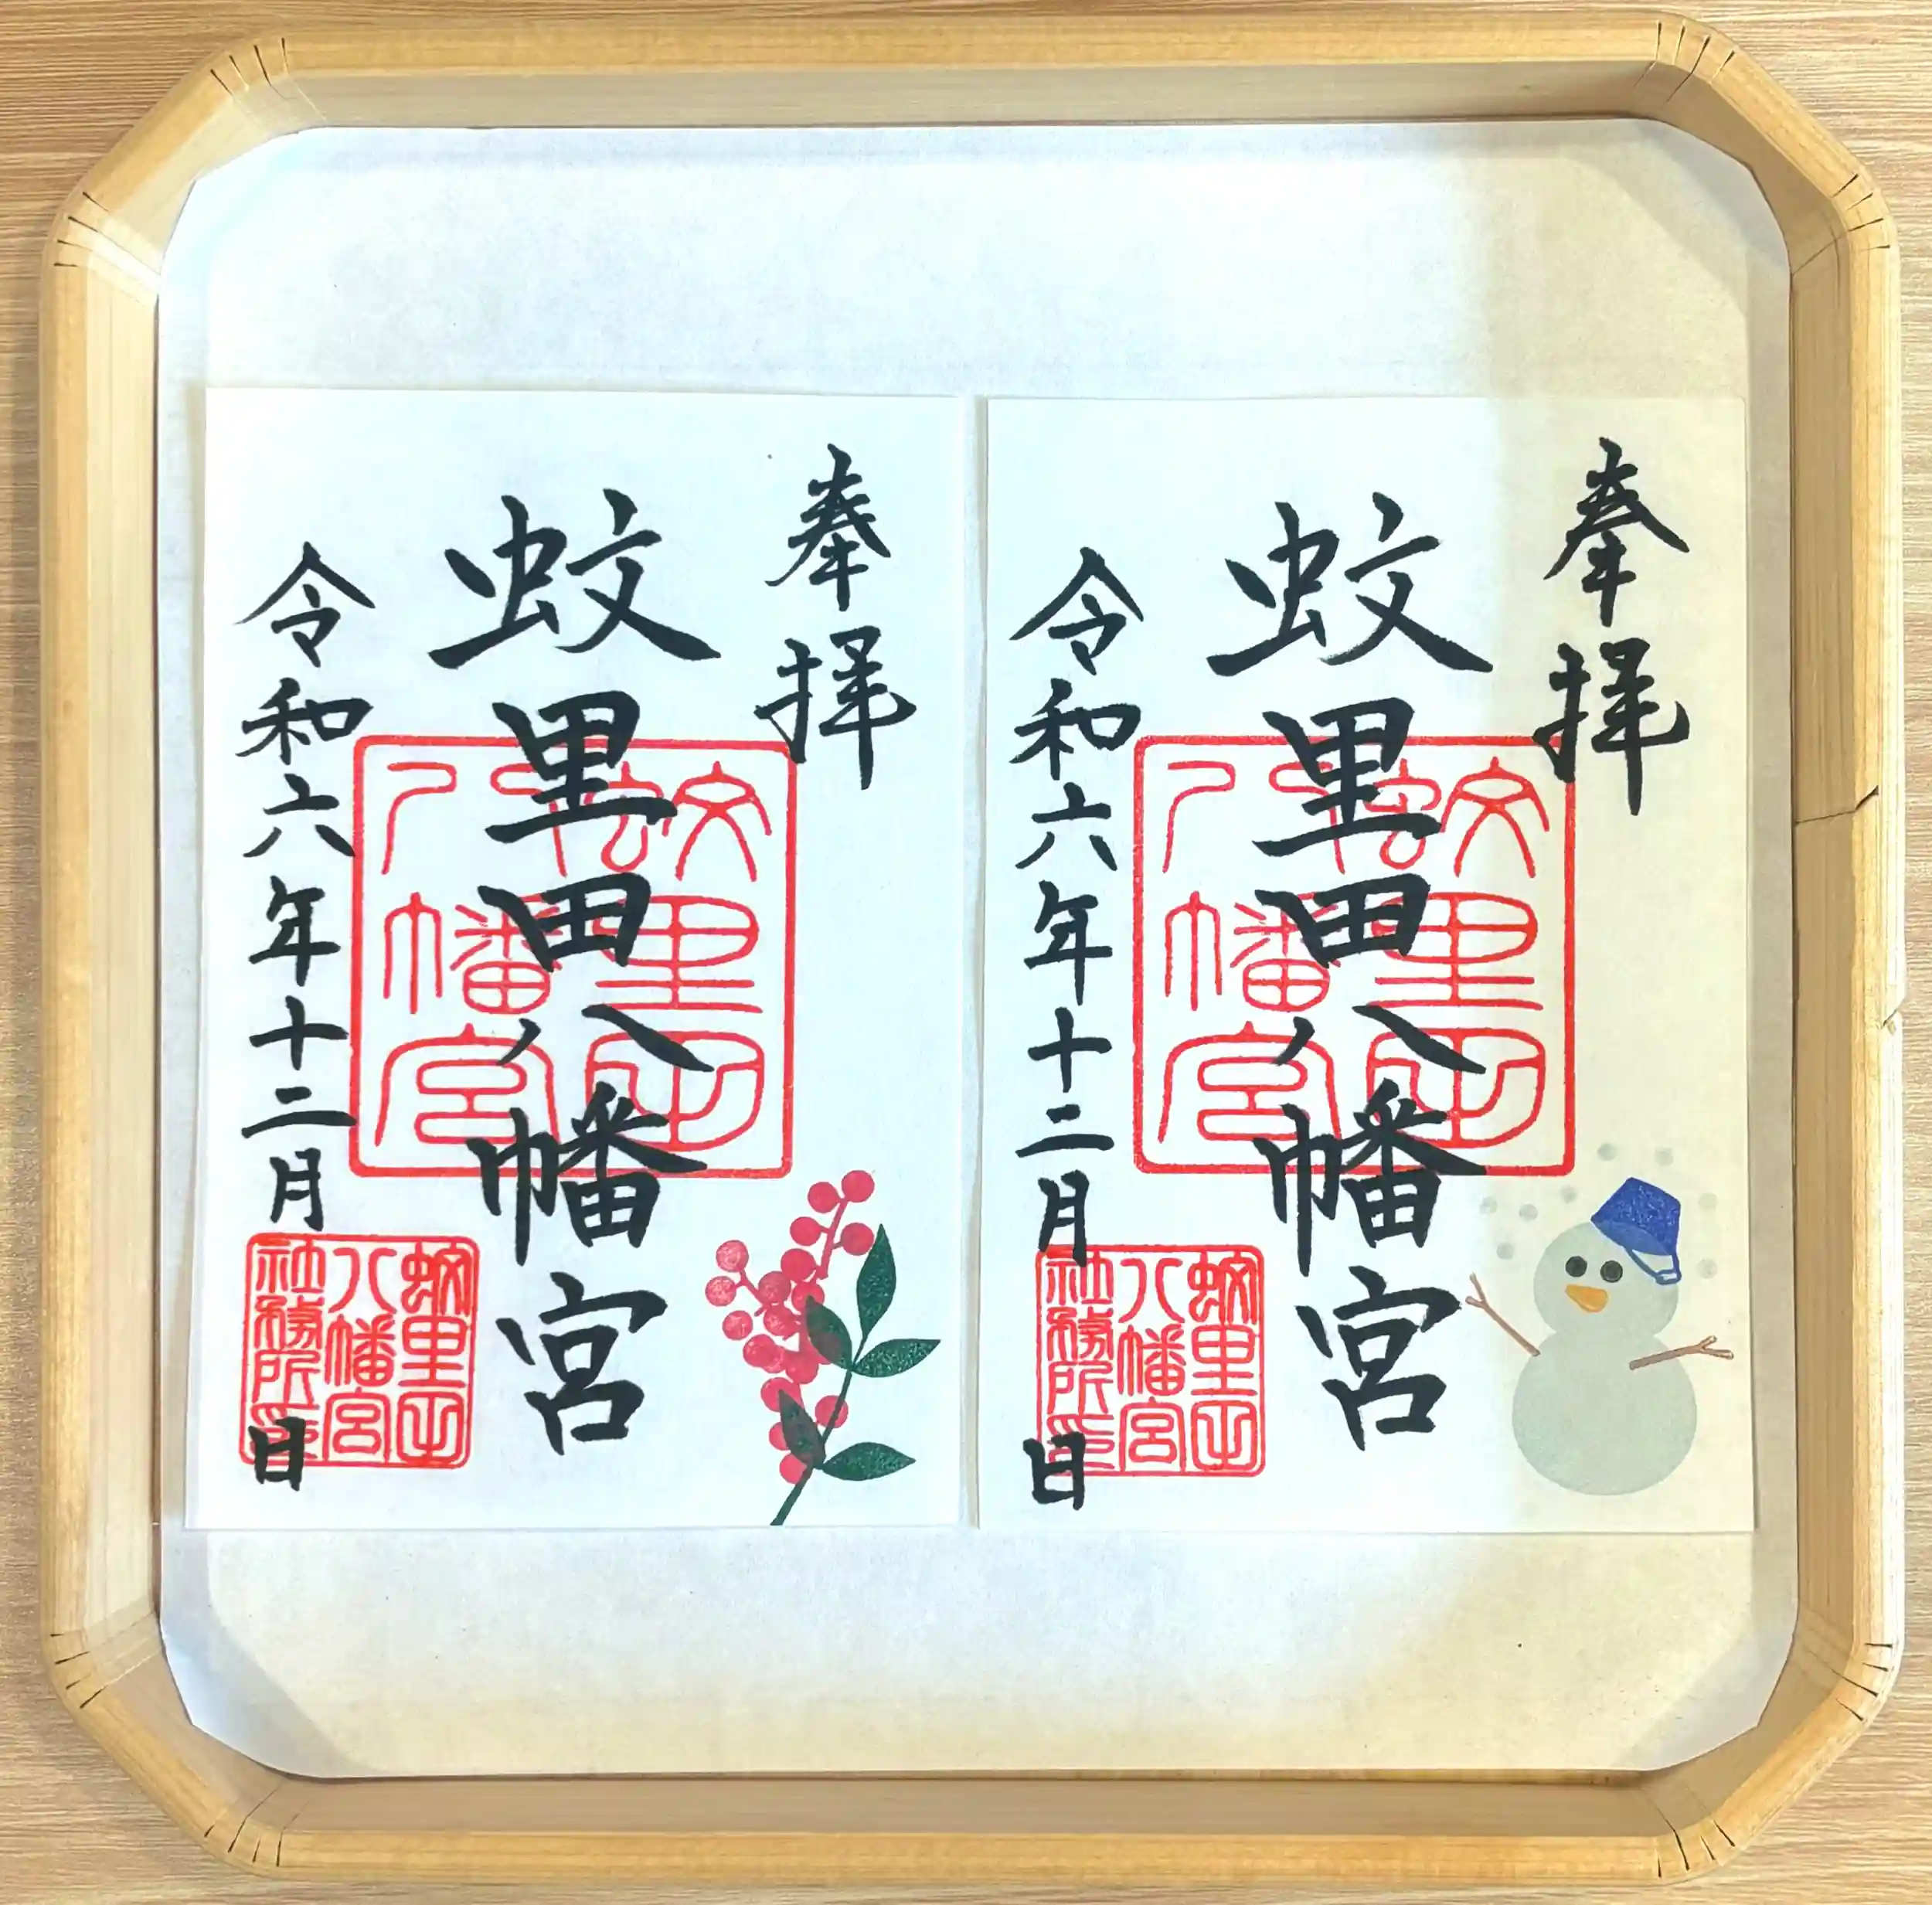 奉拝
蚊里田八幡宮
令和六年十二月 日
蚊里田
八幡宮
蚊里田
八幡宮
社務所印
奉拝
蚊里田八幡宮
令和六年十二月 日
蚊里田
八幡宮
蚊里田
八幡宮
社務所印